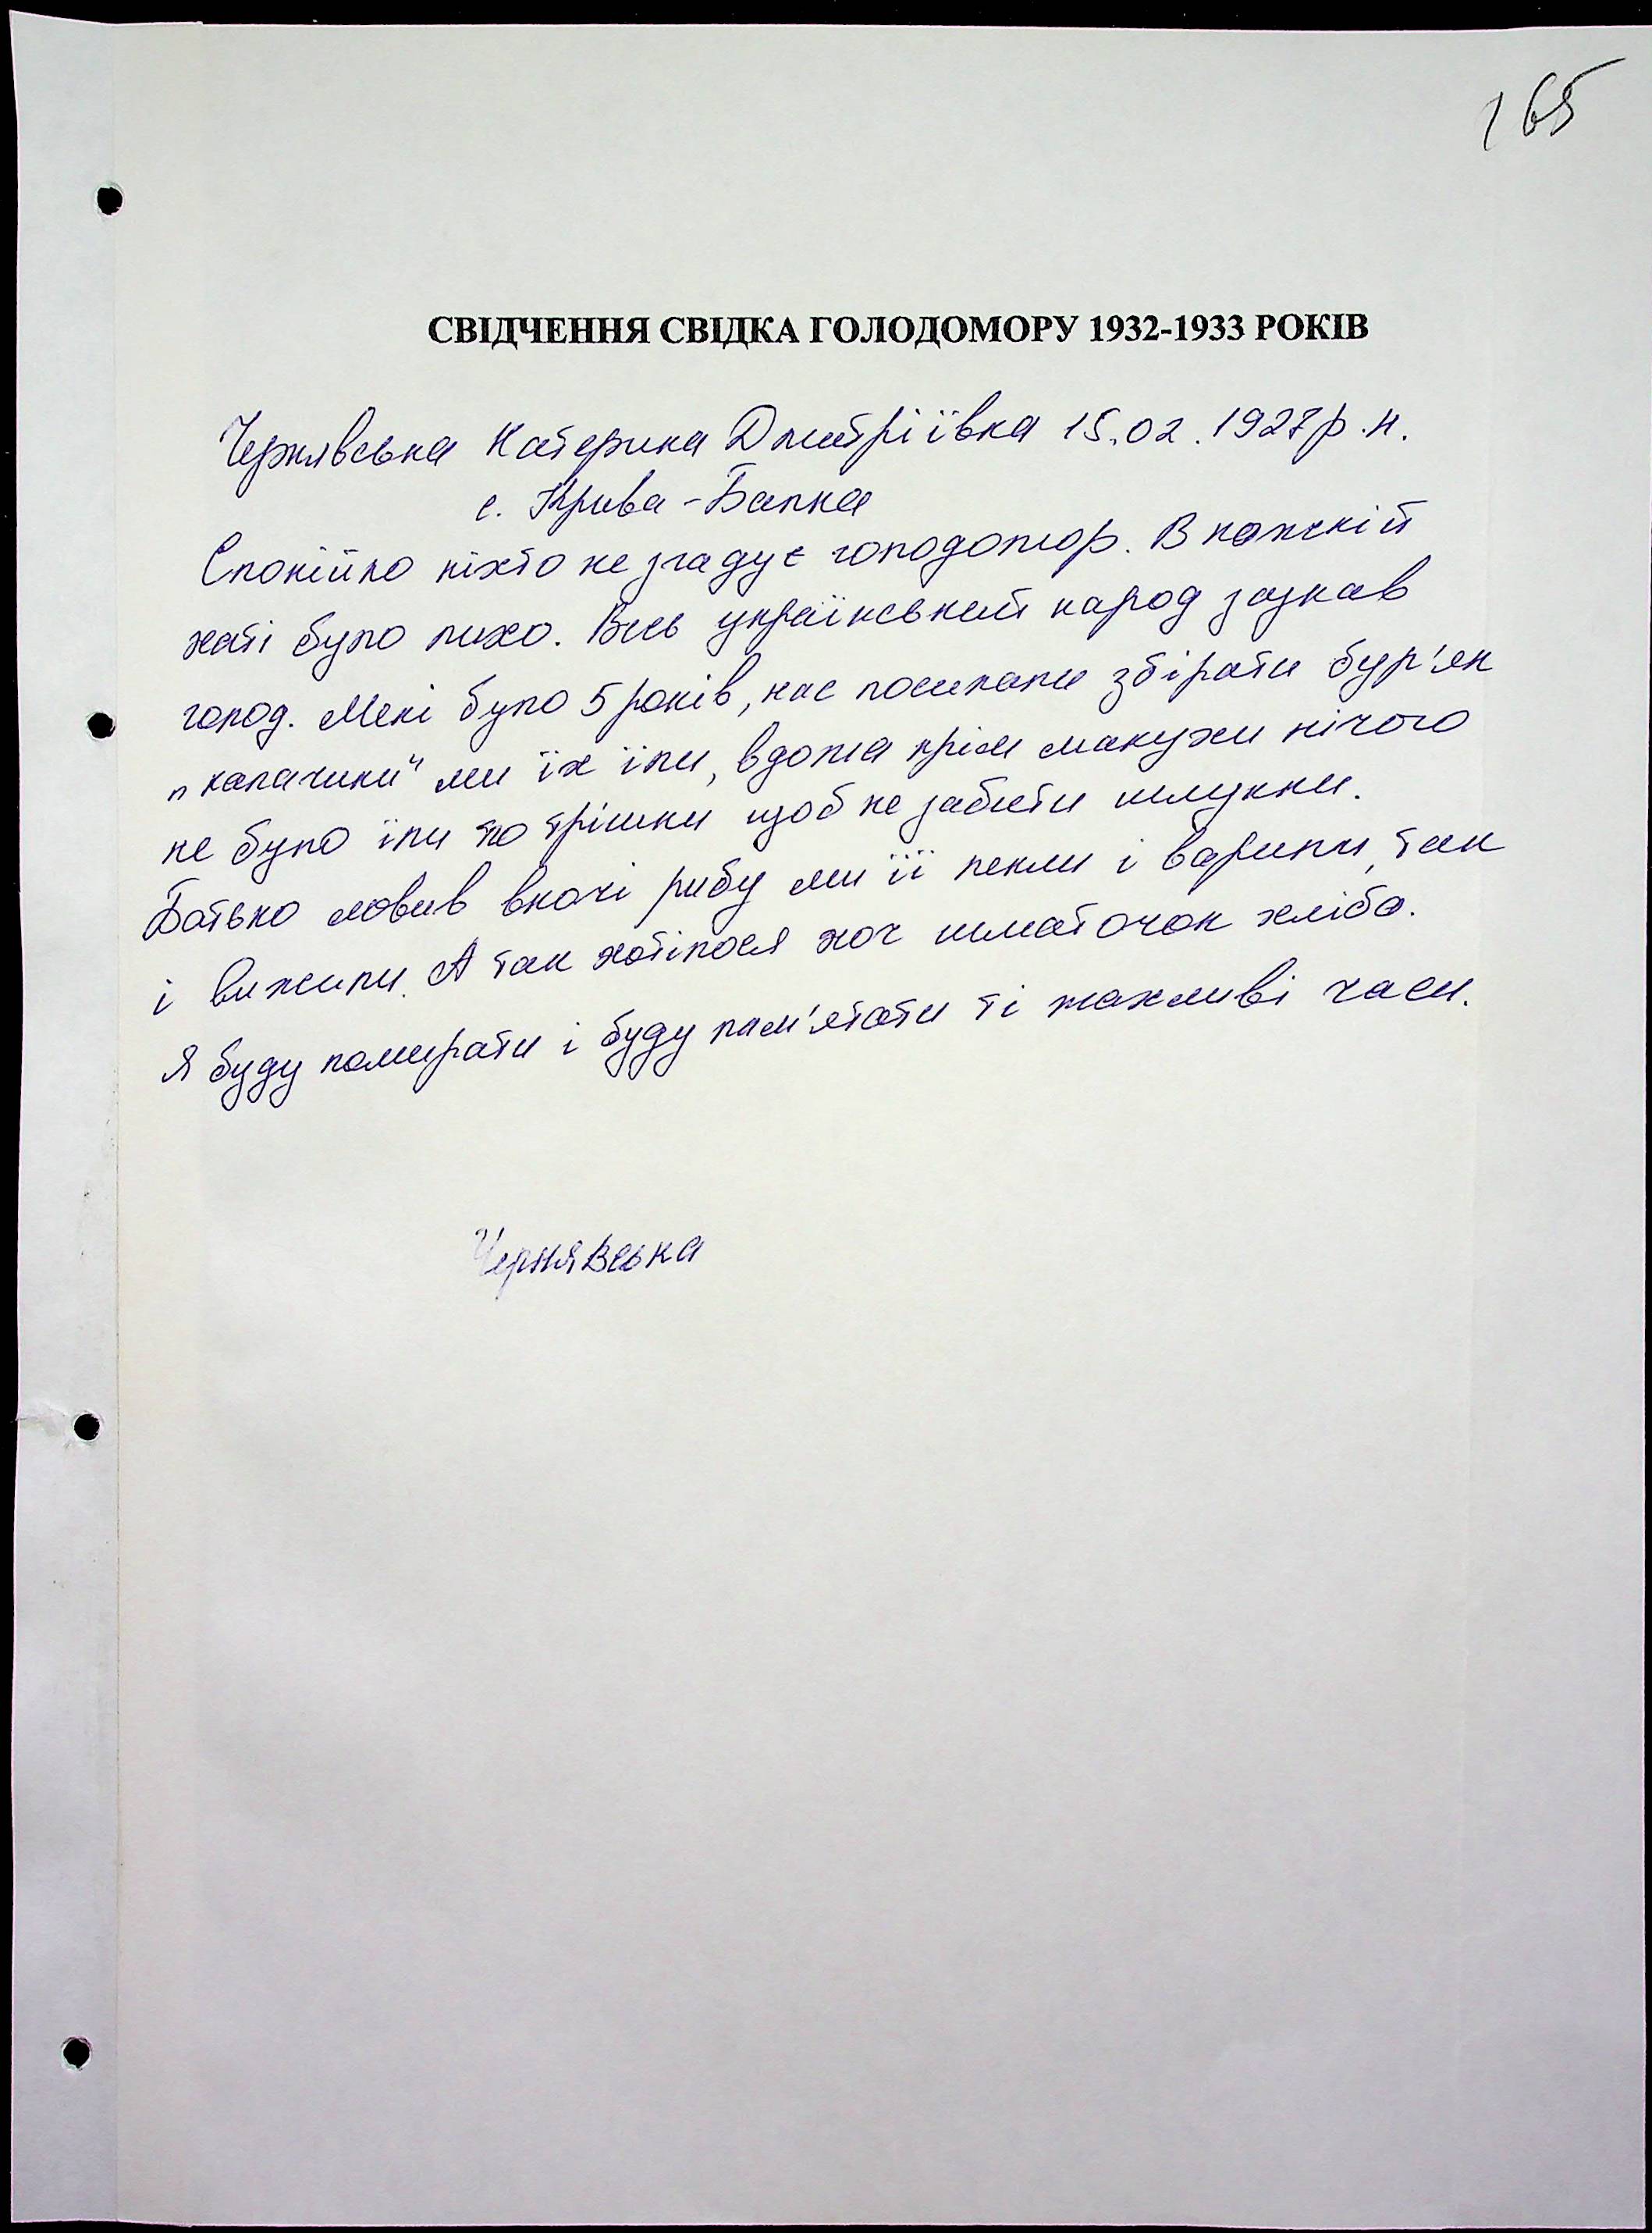 165
СВІДЧЕННЯ СВІДКА ГОЛОДОМОРУ 1932-1933 РОКІВ
Чернявська Катерина Дмитріївка 15.02.1927р.н.
с. Крива-Балка
Спокійно ніхто не згадує голодомор. В кожній
хаті було лихо. Весь український народ зазнав
голод. Мені було 5 років, нас посилали збірати бур'ян
„калачики" ми їх їли, вдома крім макухи нічого
не було їли по трішки щоб не забити шлунки.
Батько ловив вночі рибу ми її пекли і варили, так
і вижили. А так хотілося хоч шматочок хліба.
Я буду помирати і буду пам'ятати ті жахливі часи.
Чернявська